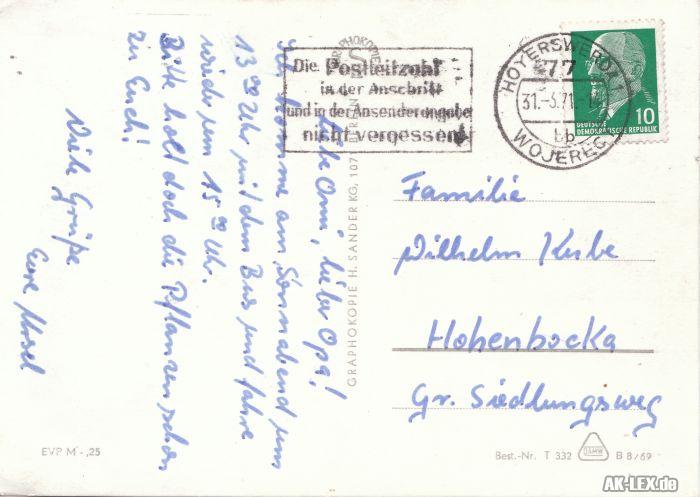 Liebe Omi, lieber Opa!
Ich komme am Sonnabend um
13 00 Uhr mit dem Bus und fahre
wieder um 15 00 Uhr.
Bitte holt doch die Pflanzen schon
zu Euch!
Viele Grüße
Eure
GRAPHOKOPIE H. SANDER KG, 107
GRAPHOKOPIE
Die Postleitzahl
in der Anschrift
und in der Absenderangabe
nicht vergessen
HOYERSWERDA 1
77
31.-3.71.-1
bb
WOJERECY
10
DEUTSCHE
DEMOKRATISCHE REPUBLIK
Familie
Wilhelm Kube
Hohenbocka
Gr. Siedlungsweg
EVP M -,25
Best.-Nr. T 332
DAMW
B 8/69
AK-LEX.de